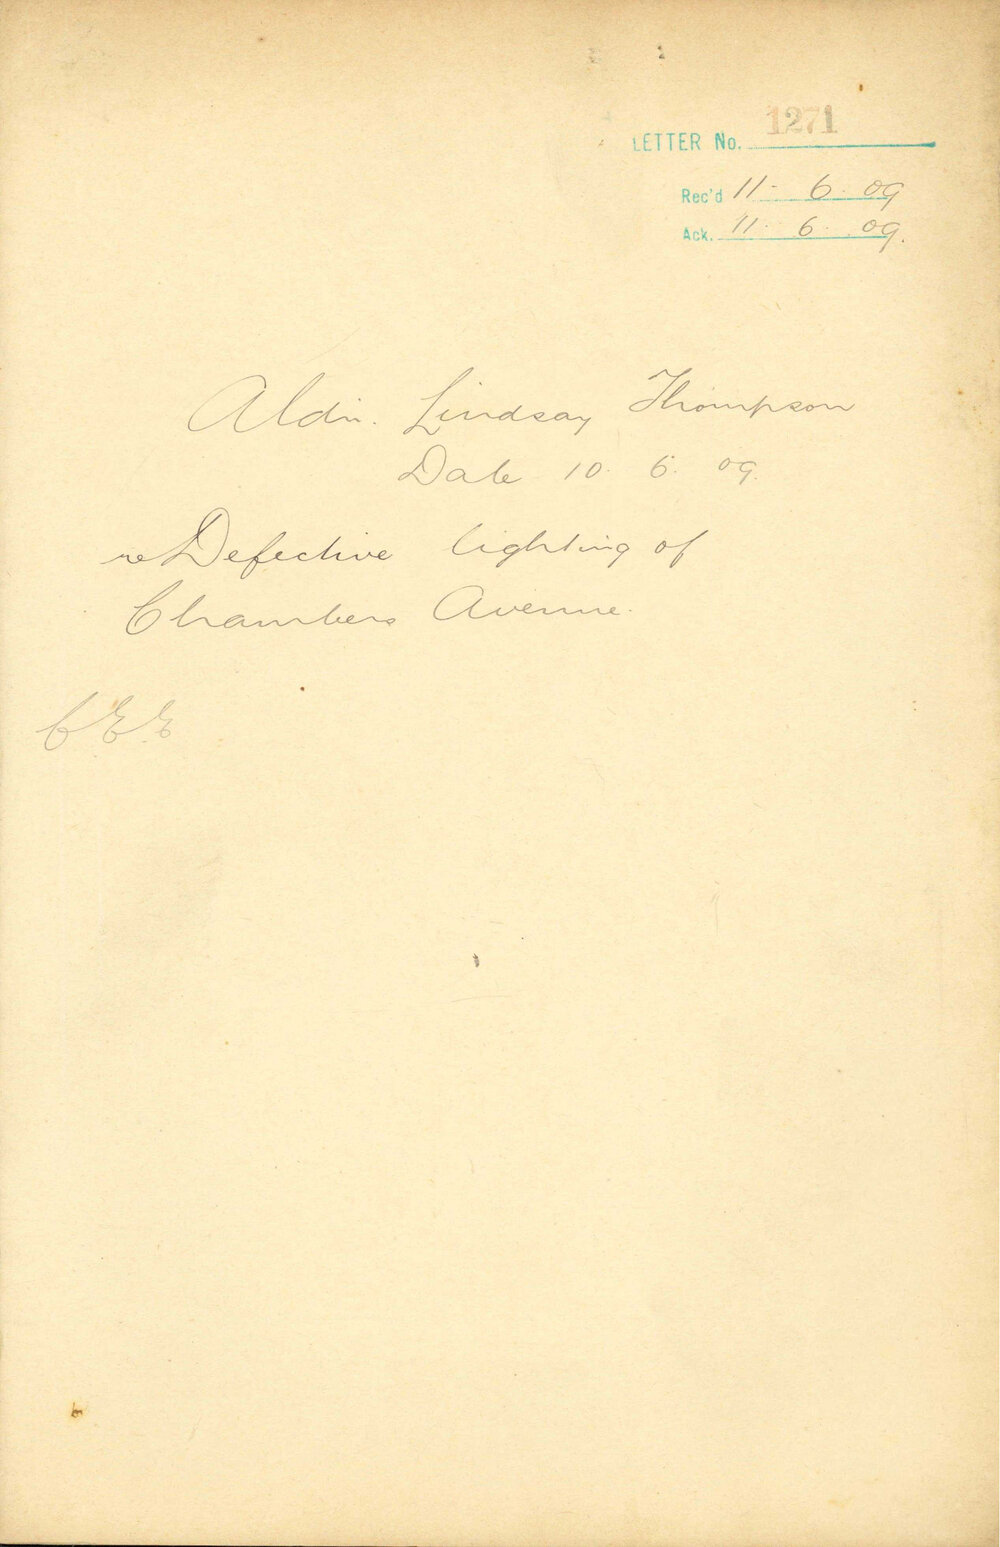 LETTER No. 1271
Rec'd 11. 6. 09
Ack. 11. 6. 09.
Aldn. Lindsay Thompson
Date 10. 6. 09.
re Defective lighting of
Chambers Avenue.
C.E.E